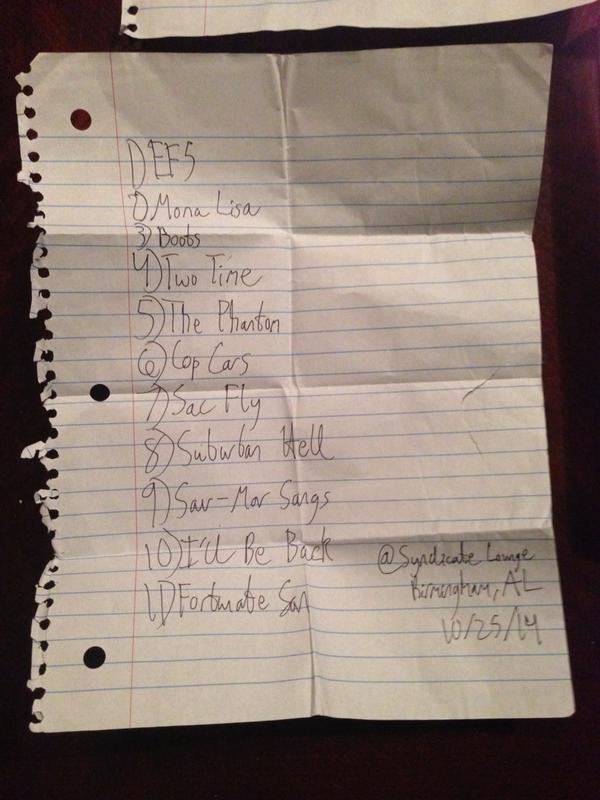 1) EF5
2) Mona Lisa
3) Boots
4) Two Time
5) The Phantom
6) Cop Cars
7) Sac Fly
8) Suburban Hell
9) Sav-Mor Songs
10) I'll Be Back
11) Fortunate Son
@Syndicate Lounge
Birmingham, AL
10/25/14